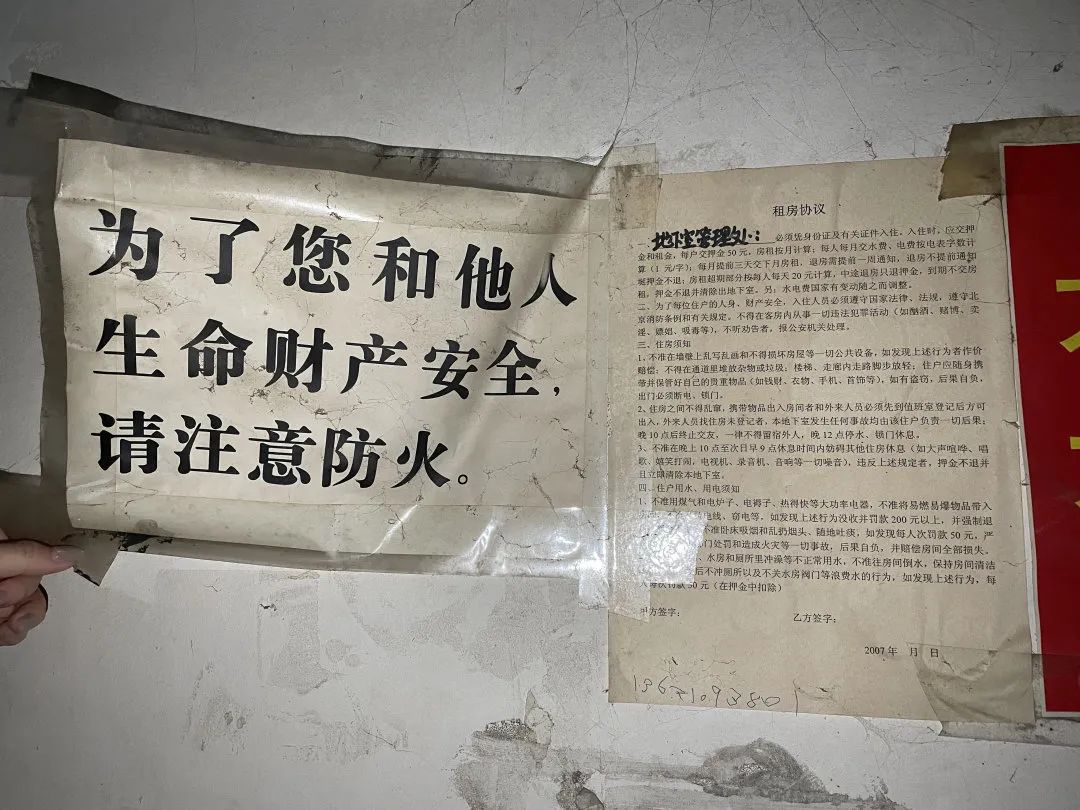 为了您和他人
生命财产安全,
请注意防火。
租房协议
一、地下室管理处: 必须凭身份证及有关证件入住。入住时,应交押
金和租金,每户交押金50元,房租按月计算;每人每月交水费、电费按电表字数计
算(1元/字);每月提前三天交下月房租,退房需提前一周通知,退房不提前通知
押金不退;房租超期部分按每人每天20元计算,中途退房只退押金,到期不交房
租,押金不退并清除出地下室。另:水电费国家有变动随之而调整。
二、为了每位住户的人身、财产安全,入住人员必须遵守国家法律、法规,遵守北
京消防条例和有关规定。不得在客房内从事一切违法犯罪活动(如酗酒、赌博、卖
淫、嫖娼、吸毒等),不听劝告者,报公安机关处理。
三、住房须知
1、不准在墙壁上乱写乱画和不得损坏房屋等一切公共设备,如发现上述行为者作价
赔偿;不得在通道里堆放杂物或垃圾;楼梯、走廊内走路脚步放轻;住户应随身携
带并保管好自己的贵重物品(如钱财、衣物、手机、首饰等),如有盗窃,后果自负,
出门必须断电、锁门。
2、住房之间不得乱窜,携带物品出入房间者和外来人员必须先到值班室登记后方可
出入,外来人员找住房未登记者,本地下室发生任何事故均由该住户负责一切后果;
晚10点后终止交友,一律不得留宿外人,晚12点停水、锁门休息。
3、不准在晚上10点至次日早9点休息时间内妨碍其他住房休息(如大声喧哗、唱
歌、嬉笑打闹,电视机、录音机、音响等一切噪音),违反上述规定者,押金不退并
且立即清除本地下室。
四、住户用水、用电须知
1、不准用煤气和电炉子、电褥子、热得快等大功率电器,不准将易燃易爆物品带入
电线、窃电等,如发现上述行为没收并罚款200元以上,并强制退
准卧床吸烟和乱扔烟头、随地吐痰,如发现每人次罚款50元,严
门处罚和造成火灾等一切事故,后果自负,并赔偿房间全部损失。
、水房和厕所里冲澡等不正常用水,不准往房间倒水,保持房间清洁
后不冲厕所以及不关水房阀门等浪费水的行为,如发现上述行为,每
人每次罚款50元(在押金中扣除)
甲方签字: 乙方签字:
2007年 月 日